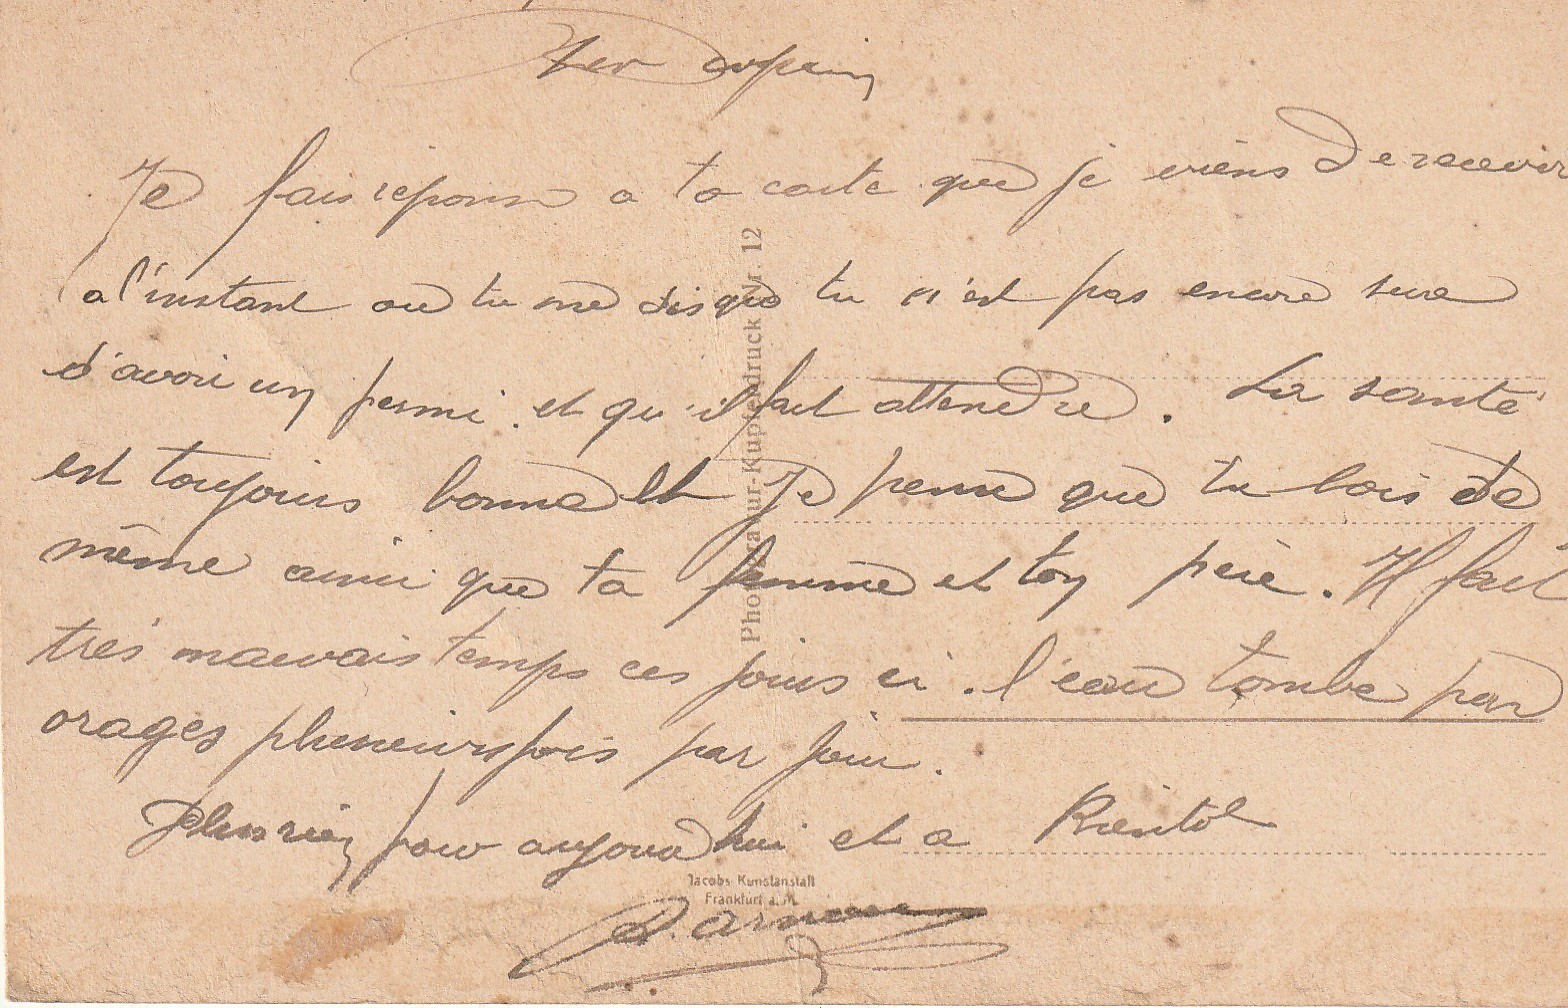 Cher copain
Je fais réponse a ta carte que je viens de recevoir
a l'instant ou tu me dis que tu n'est pas encore sure
d'avoir un permi. et qu'il faut attendre. La santé
est toujours bonne et Je pense que tu bois de
même ainsi que ta femme et ton père. Il fait
très mauvais temps ces jours ci. l'eau tombe par
orages plusieurs fois par jour.
plus rien pour aujourd hui et a Bientot
Photogravur-Kupferdruck Nr. 12
Jacobs Kunstanstalt
Frankfurt a. M.